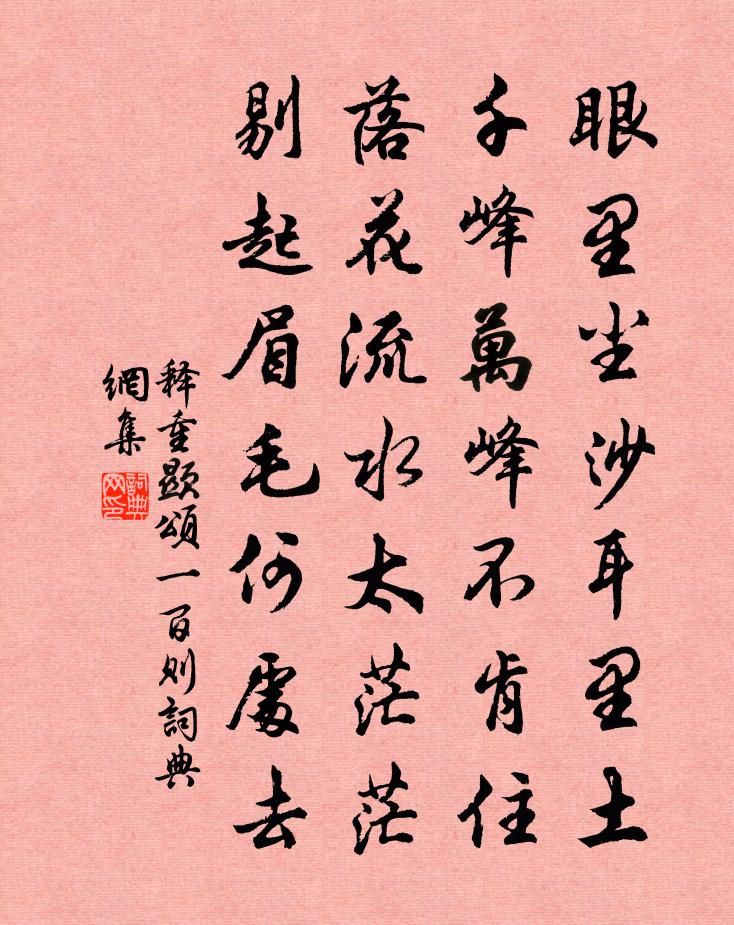 眼里尘沙耳里土
千峰萬峰不肯住
落花流水太茫茫
剔起眉毛何處去
释重顯頌一百则詞典
網集
詞典
网印